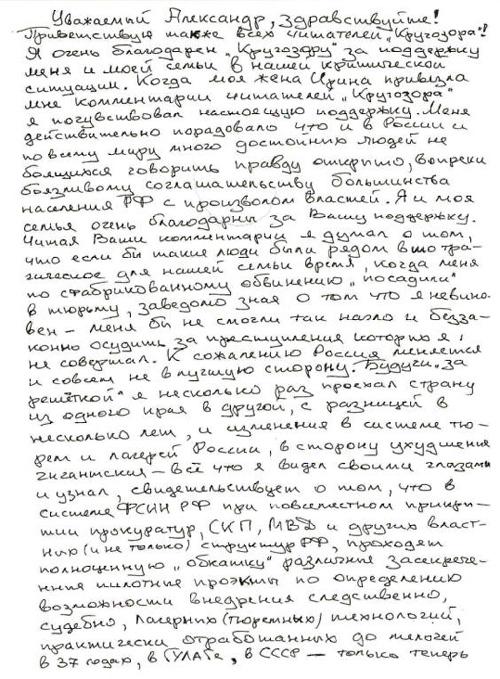 Уважаемый Александр, здравствуйте!
Приветствую также всех читателей „Кругозора"!
Я очень благодарен „Кругозору" за поддержку
меня и моей семьи в нашей критической
ситуации. Когда моя жена Ирина привезла
мне комментарии читателей „Кругозора"
я почувствовал настоящую поддержку. Меня
действительно порадовало что и в России и
по всему миру много достойных людей не
боящихся говорить правду открыто, вопреки
боязливому соглашательству большинства
населения РФ с произволом властей. Я и моя
семья очень благодарны за Вашу поддержку.
Читая Ваши комментарии я думал о том,
что если бы такие люди были рядом в то тра-
гическое для нашей семьи время, когда меня
по сфабрикованному обвинению „посадили"
в тюрьму, заведомо зная о том что я невино-
вен – меня бы не смогли так нагло и безза-
конно осудить за преступления которых я
не совершал. К сожалению Россия меняется
и совсем не в лучшую сторону. Будучи „за
решёткой" я несколько раз проехал страну
из одного края в другой, с разницей в
несколько лет, и изменения в системе тю-
рем и лагерей России, в сторону ухудшения
гигантские – всё что я видел своими глазами
и узнал, свидетельствует о том, что в
системе ФСИН РФ при повсеместном
прокуратур, СКП, МВД и других власт-
ных (и не только) структур РФ, проходят
полноценную „обкатку" различные засекрече-
нные пилотные проэкты по определению
возможности внедрения следственно,
судебно, лагерных (тюремных) технологий,
практически отработанных до мелочей
в 37 годах, в ГУЛАГе, в СССР – только теперь